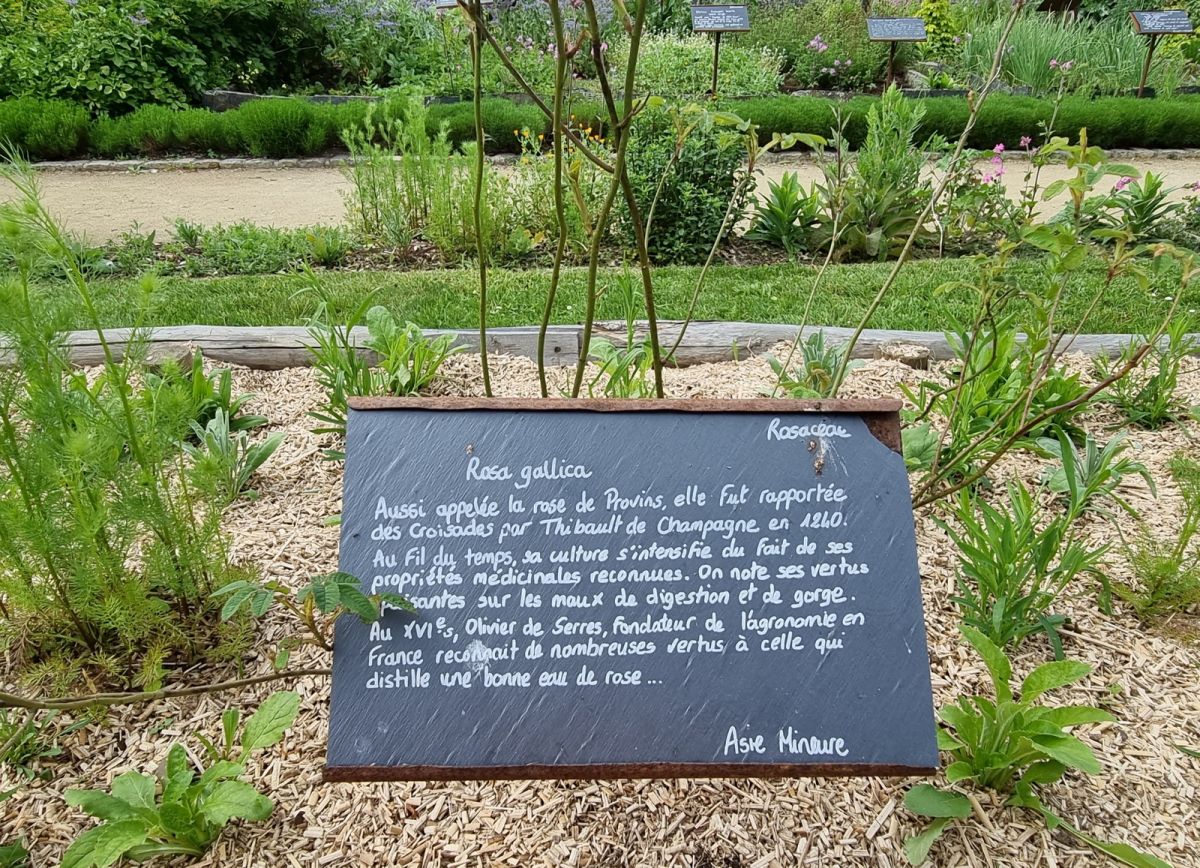 Rosaceae
Rosa gallica
Aussi appelée la rose de Provins, elle fut rapportée
des Croisades par Thibault de Champagne en 1240.
Au fil du temps, sa culture s'intensifie du fait de ses
propriétés médicinales reconnues. On note ses vertus
sur les maux de digestion et de gorge.
Au XVIe s, Olivier de Serres, fondateur de l'agronomie en
France reconnait de nombreuses vertus à celle qui
distille une bonne eau de rose...
Asie Mineure